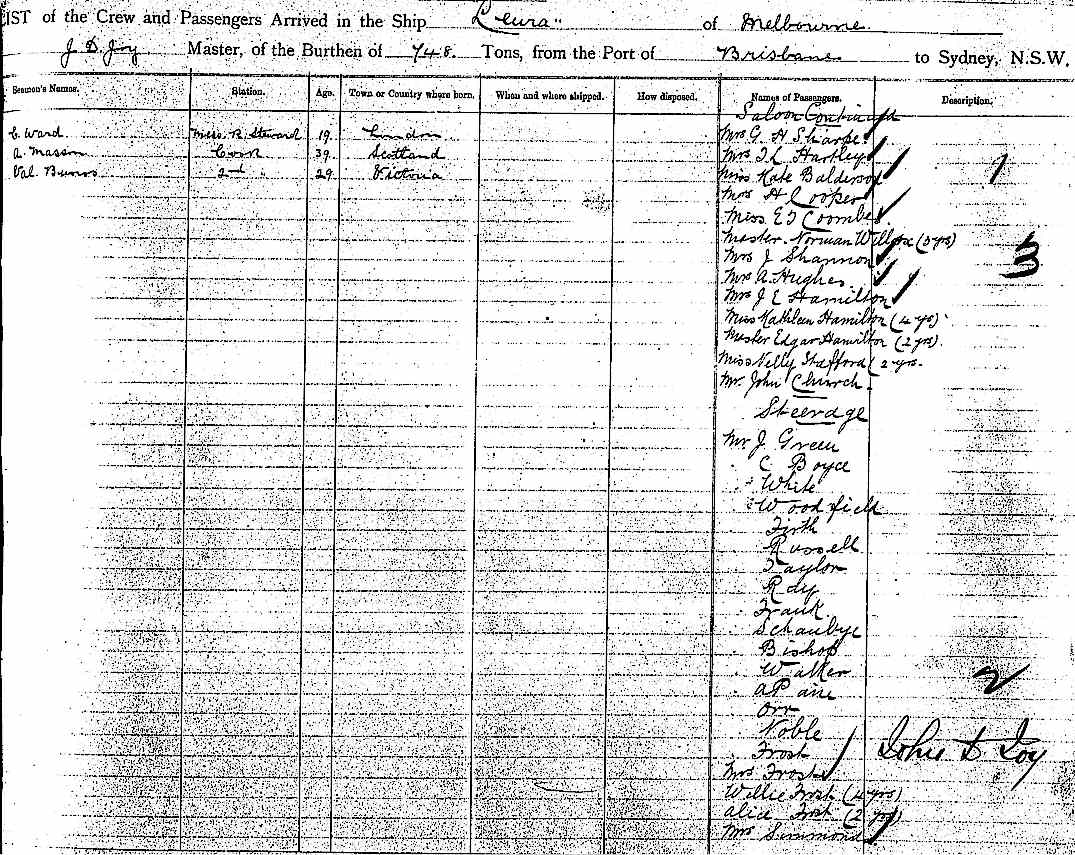 LIST of the Crew and Passengers Arrived in the Ship "Leura" of Melbourne
J D Joy Master, of the Burthen of 748 Tons, from the Port of Brisbane to Sydney, N.S.W.
Seamen's Names. Station. Age. Town or Country where born. When and where shipped. How disposed. Names of Passengers. Description.
Saloon Continued
C. Ward Mess. R. Steward 19 London Mrs G. H Sharpe
A. Masson Cook 39 Scotland Mrs T L Hartley
Val. Burns 2nd " 29 Victoria Miss Kate Balderson 1
Mrs H Cooper
Miss E J Coombes
Master Norman Willcox (3 yrs)
Mrs J Shannon 3
Mrs A. Hughes
Mrs J E Hamilton
Miss Kathleen Hamilton (4 yrs)
Master Edgar Hamilton (2 yrs)
Miss Nelly Stafford (2 yrs.
Mr. John Church
Steerage
Mr J. Green
" C Boyce
" White
" Woodfield
" Firth
" Russell
" Taylor
" Ray
" Frank
" Schaubye
" Bishop
" Walker 2
" A Paine
" Orr
" Noble
" Frost John D Joy
Mrs Frost
Willie Frost (4 yrs)
Alice Frost (2 yrs)
Mrs Simmonds